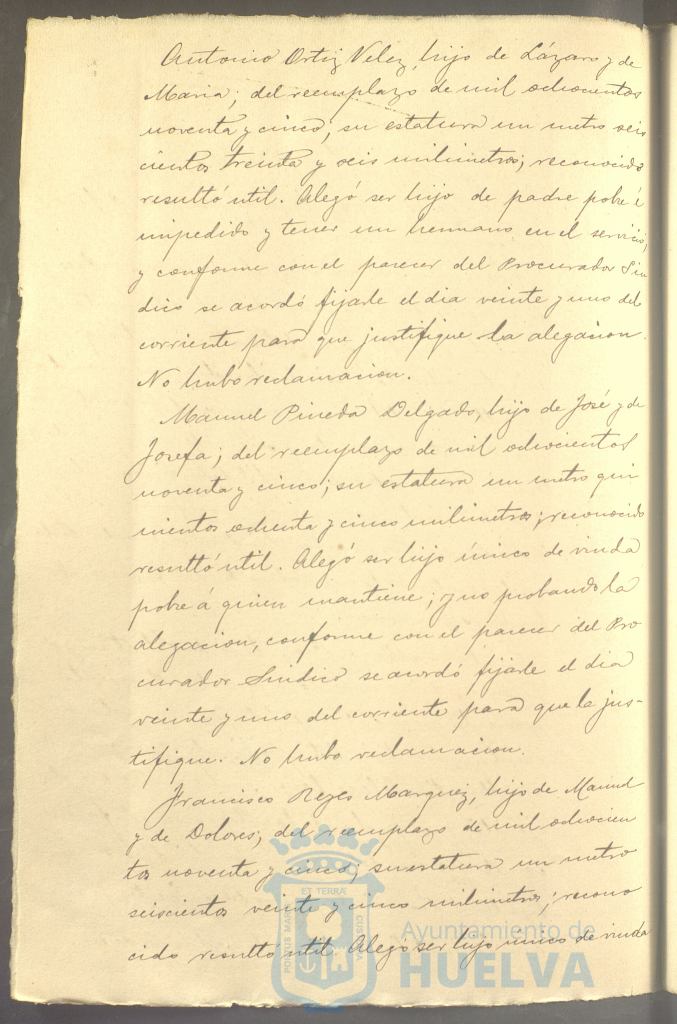 Antonio Ortiz Velez, hijo de Lázaro y de
Maria; del reemplazo de mil ochocientos
noventa y cinco, su estatura un metro seis
cientos treinta y seis milimetros; reconocido
resultó util. Alegó ser hijo de padre pobre é
impedido y tener un hermano en el servicio;
y conforme con el parecer del Procurador Sin
dico se acordó fijarle el dia veinte y uno del
corriente para que justifique la alegacion.
No hubo reclamacion.
Manuel Pineda Delgado, hijo de José y de
Josefa; del reemplazo de mil ochocientos
noventa y cinco; su estatura un metro qui
nientos ochenta y cinco milimetros; reconocido
resultó util. Alegó ser hijo único de viuda
pobre á quien mantiene; y no probando la
alegacion, conforme con el parecer del Pro
curador Sindico se acordó fijarle el dia
veinte y uno del corriente para que la jus-
tifique. No hubo reclamacion.
Francisco Reyes Marquez, hijo de Manuel
y de Dolores; del reemplazo de mil ochocien
tos noventa y cinco; su estatura un metro
seiscientos veinte y cinco milimetros; recono
cido resultó util. Alegó ser hijo único de viuda
PORTUS MARIS ET TERRÆ CUSTODIA
Ayuntamiento de
HUELVA